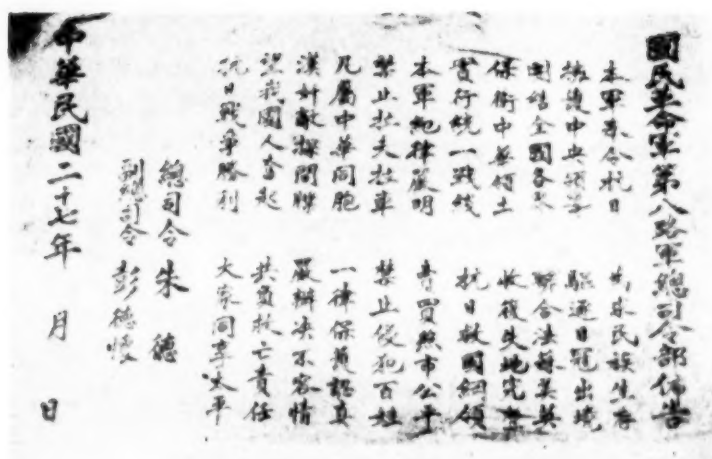 國民革命軍第八路軍總司令部佈告
本軍奉令抗日 為求民族生存
擁護中央領導 驅逐日寇出境
團結全國各界 聯合法蘇美英
保衛中華領土 收復失地完整
實行統一戰線 抗日救國綱領
本軍紀律嚴明 買照市公平
禁止拉夫拉車 禁止侵犯百姓
凡屬中華同胞 一律保護認真
漢奸敵探間諜 嚴辦决不容情
望我國人奮起 共負救亡責任
抗日戰爭勝利 大家同享太平
總司令 朱德
副總司令 彭德懷
中華民國二十七年 月 日